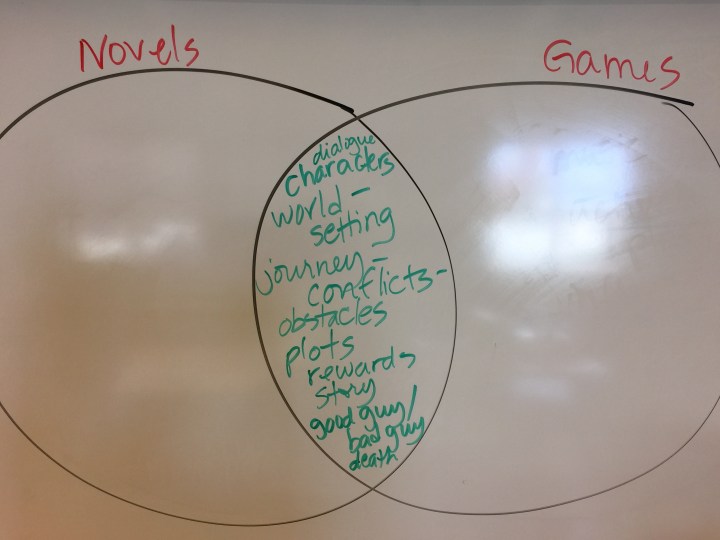 Novels
Games
dialogue
characters
world -
setting
journey -
conflicts -
obstacles
plots
rewards
story
good guy/
bad guy
death